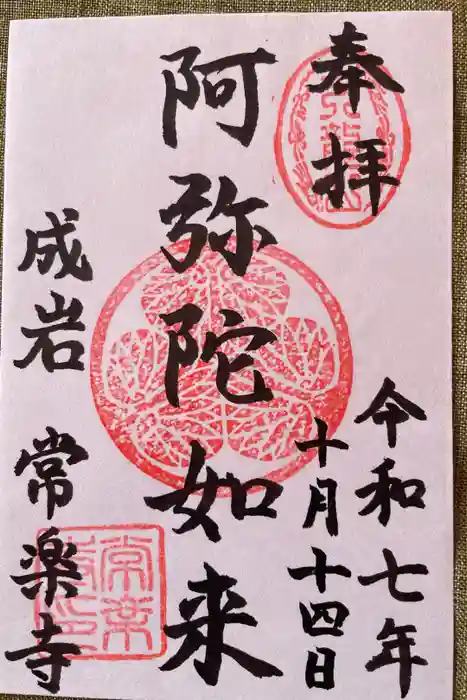 奉拝
令和七年
十月十四日
阿弥陀如来
成岩 常楽寺